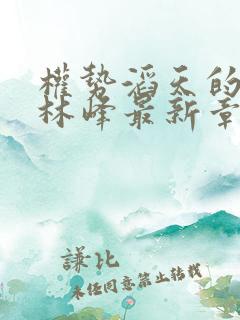 權勢滔天的
林峰最新章
謙比
未经同意禁止转载